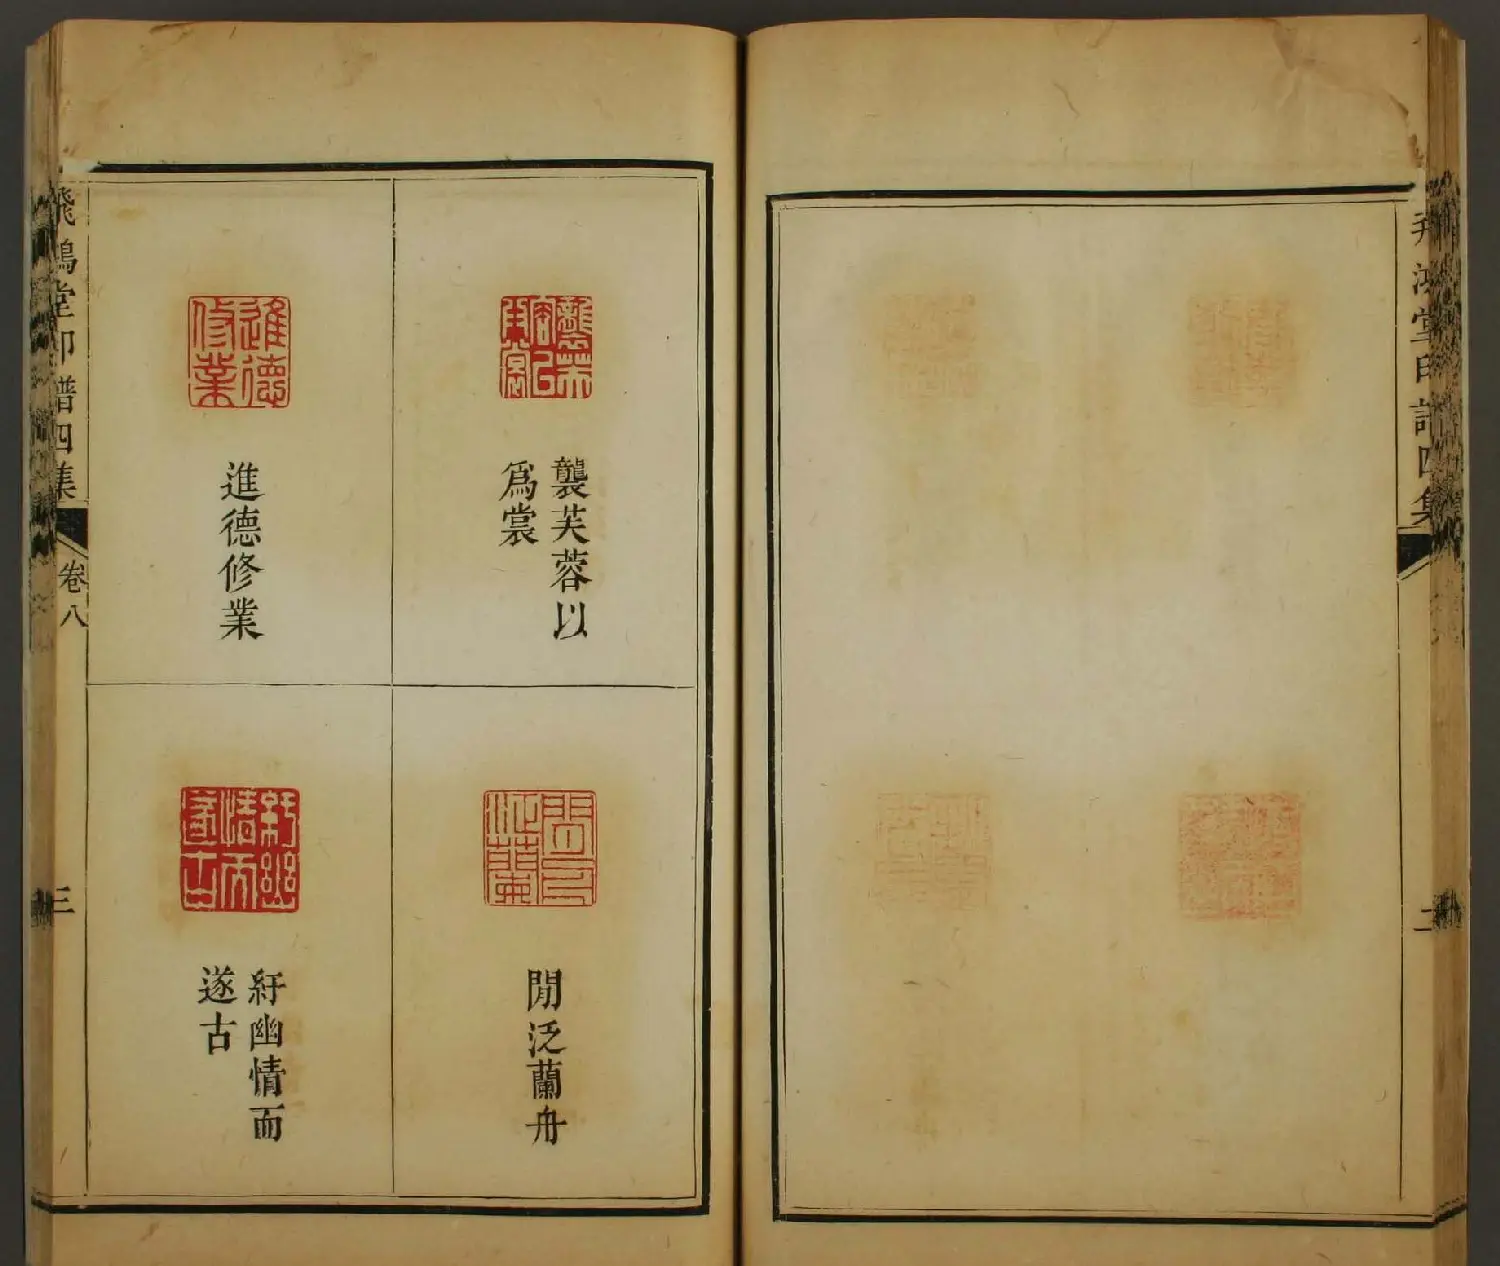 飛鴻堂印譜四集
二
襲芙蓉以
爲裳
閒泛蘭舟
進德修業
紆幽情而
遂古
飛鴻堂印譜四集
卷八
三